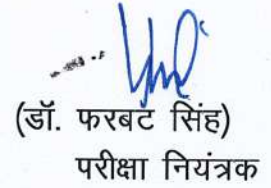 (डॉ. फरबट सिंह)
परीक्षा नियंत्रक